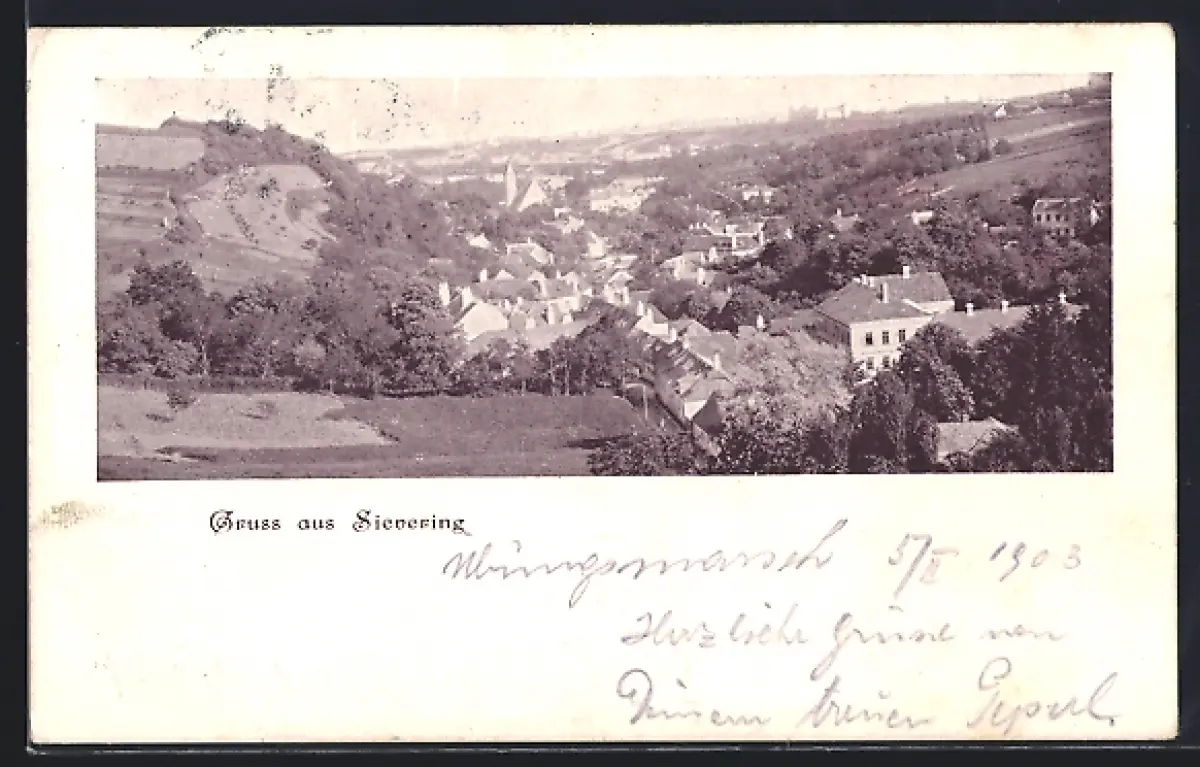 Gruss aus Sievering
Übungsmarsch 5/II 1903
Herzliche Grüsse von
Deinem treuen